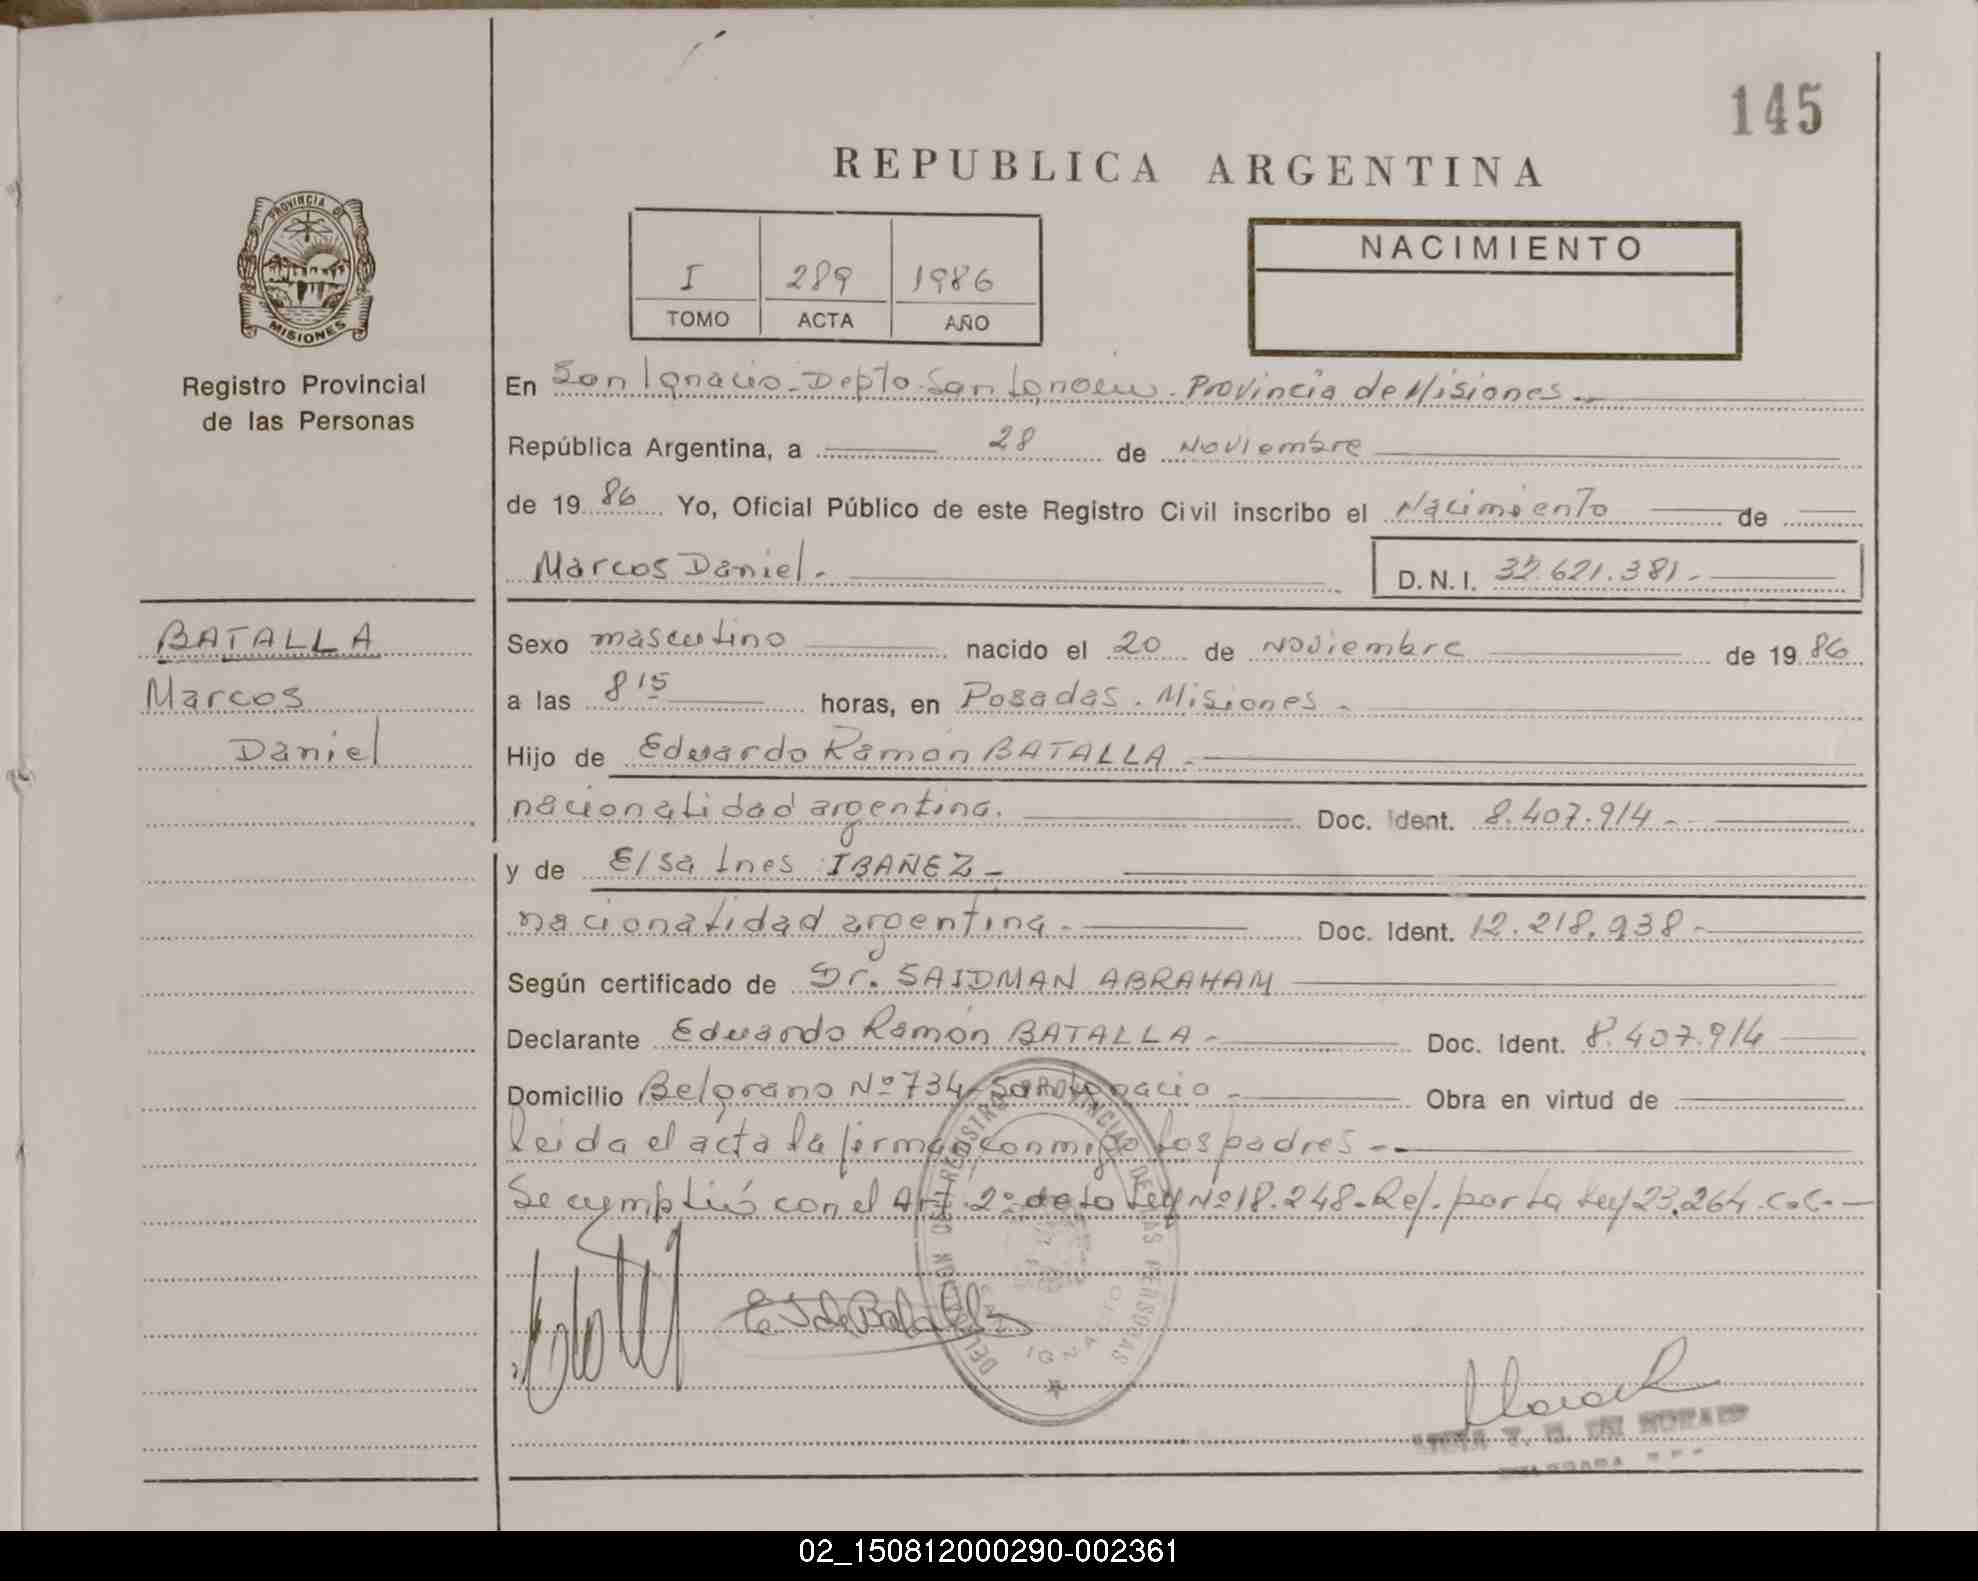 145
REPUBLICA ARGENTINA
PROVINCIA DE
MISIONES
Registro Provincial
de las Personas
I 289 1986
TOMO ACTA AÑO
NACIMIENTO
En San Ignacio - Depto. San Ignacio - Provincia de Misiones -
República Argentina, a 28 de Noviembre
de 19 86 Yo, Oficial Público de este Registro Civil inscribo el Nacimiento de
Marcos Daniel.- D.N.I. 32.621.381.-
BATALLA
Marcos
Daniel
Sexo masculino nacido el 20 de Noviembre de 19 86
a las 8 15 horas, en Posadas. Misiones -
Hijo de Eduardo Ramón BATALLA -
nacionalidad argentina. Doc. Ident. 8.407.914 -
y de Elsa Ines IBAÑEZ -
nacionalidad argentina - Doc. Ident. 12.218.938 -
Según certificado de Dr. SAIDMAN ABRAHAM
Declarante Eduardo Ramón BATALLA - Doc. Ident. 8.407.914
Domicilio Belgrano Nº 734 - San Ignacio - Obra en virtud de
leida el acta la firman conmigo los padres -
Se cumplió con el Art. 2º de la Ley Nº 18.248 - Ref. por la Ley 23.264
REGISTRO PROVINCIAL DE LAS PERSONAS
SAN IGNACIO
E I de Batalla
02_150812000290-002361